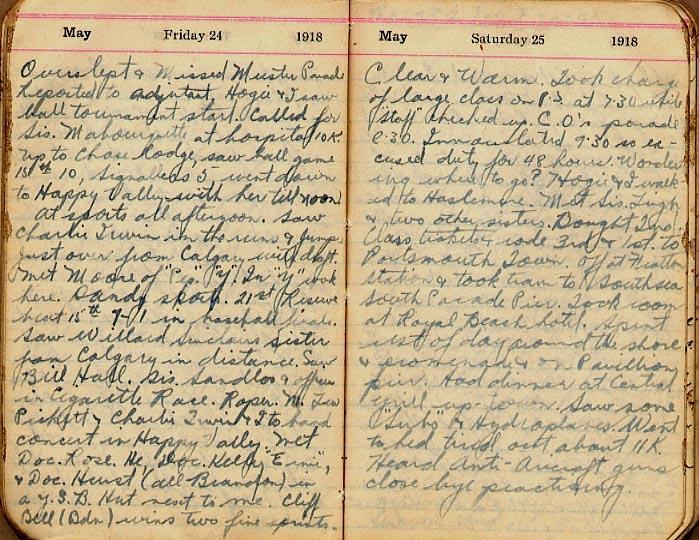 May Friday 24 1918
Overslept & Missed Muster Parade
Reported to adjutant. Hogie & I saw
ball tournament start. Called for
Sis. at hospital 10 K.
up to Chase Lodge, saw ball game
15th 10, Signallers 5 - went down
to Happy Valley with her till noon
at sports all afternoon. Saw
Charlie Irwin in the runs & jumps
just over from Calgary with draft.
Met Moore of "Y". In "Y" work
here. Dandy sport. 21st Reserve
beat 15th 7-1 in baseball finals.
Saw Willard Sinclairs sister
from Calgary in distance. Saw
Bill Hall. Sis. & officer
in Cigarette Race. Roper. M.
Pickett, Charlie Irwin & I to band
concert in Happy Valley. Met
Doc. Rose. He, Doc. Kelly
& Doc. Hurst (all Brandon) in
a Hut next to me. Cliff
Bell (Bdn) wins two fine sprints.
May Saturday 25 1918
Clear & Warm. Took charge
of large class on P.T. at 7:30 while
"staff" checked up. C.O's parade
8.30. Innoculated 9:30 so ex-
cused duty for 48 hours. Wonder-
ing where to go? Hogie & I walk-
ed to Haslemere. Met Sis.
& two other sisters. Bought
Class tickets & rode 3rd & 1st to
Portsmouth Town. Off at Fratton
station & took tram to Southsea
South Parade Pier. Took room
at Royal Beach hotel. Spent
rest of day around the shore
& promenade & on Pavillion
pier. Had dinner at Central
Grill up-town. Saw some
"Subs" & Hydroplanes. Went
to bed tired out about 11 K.
Heard Anti-Aircraft guns
close bye practising.